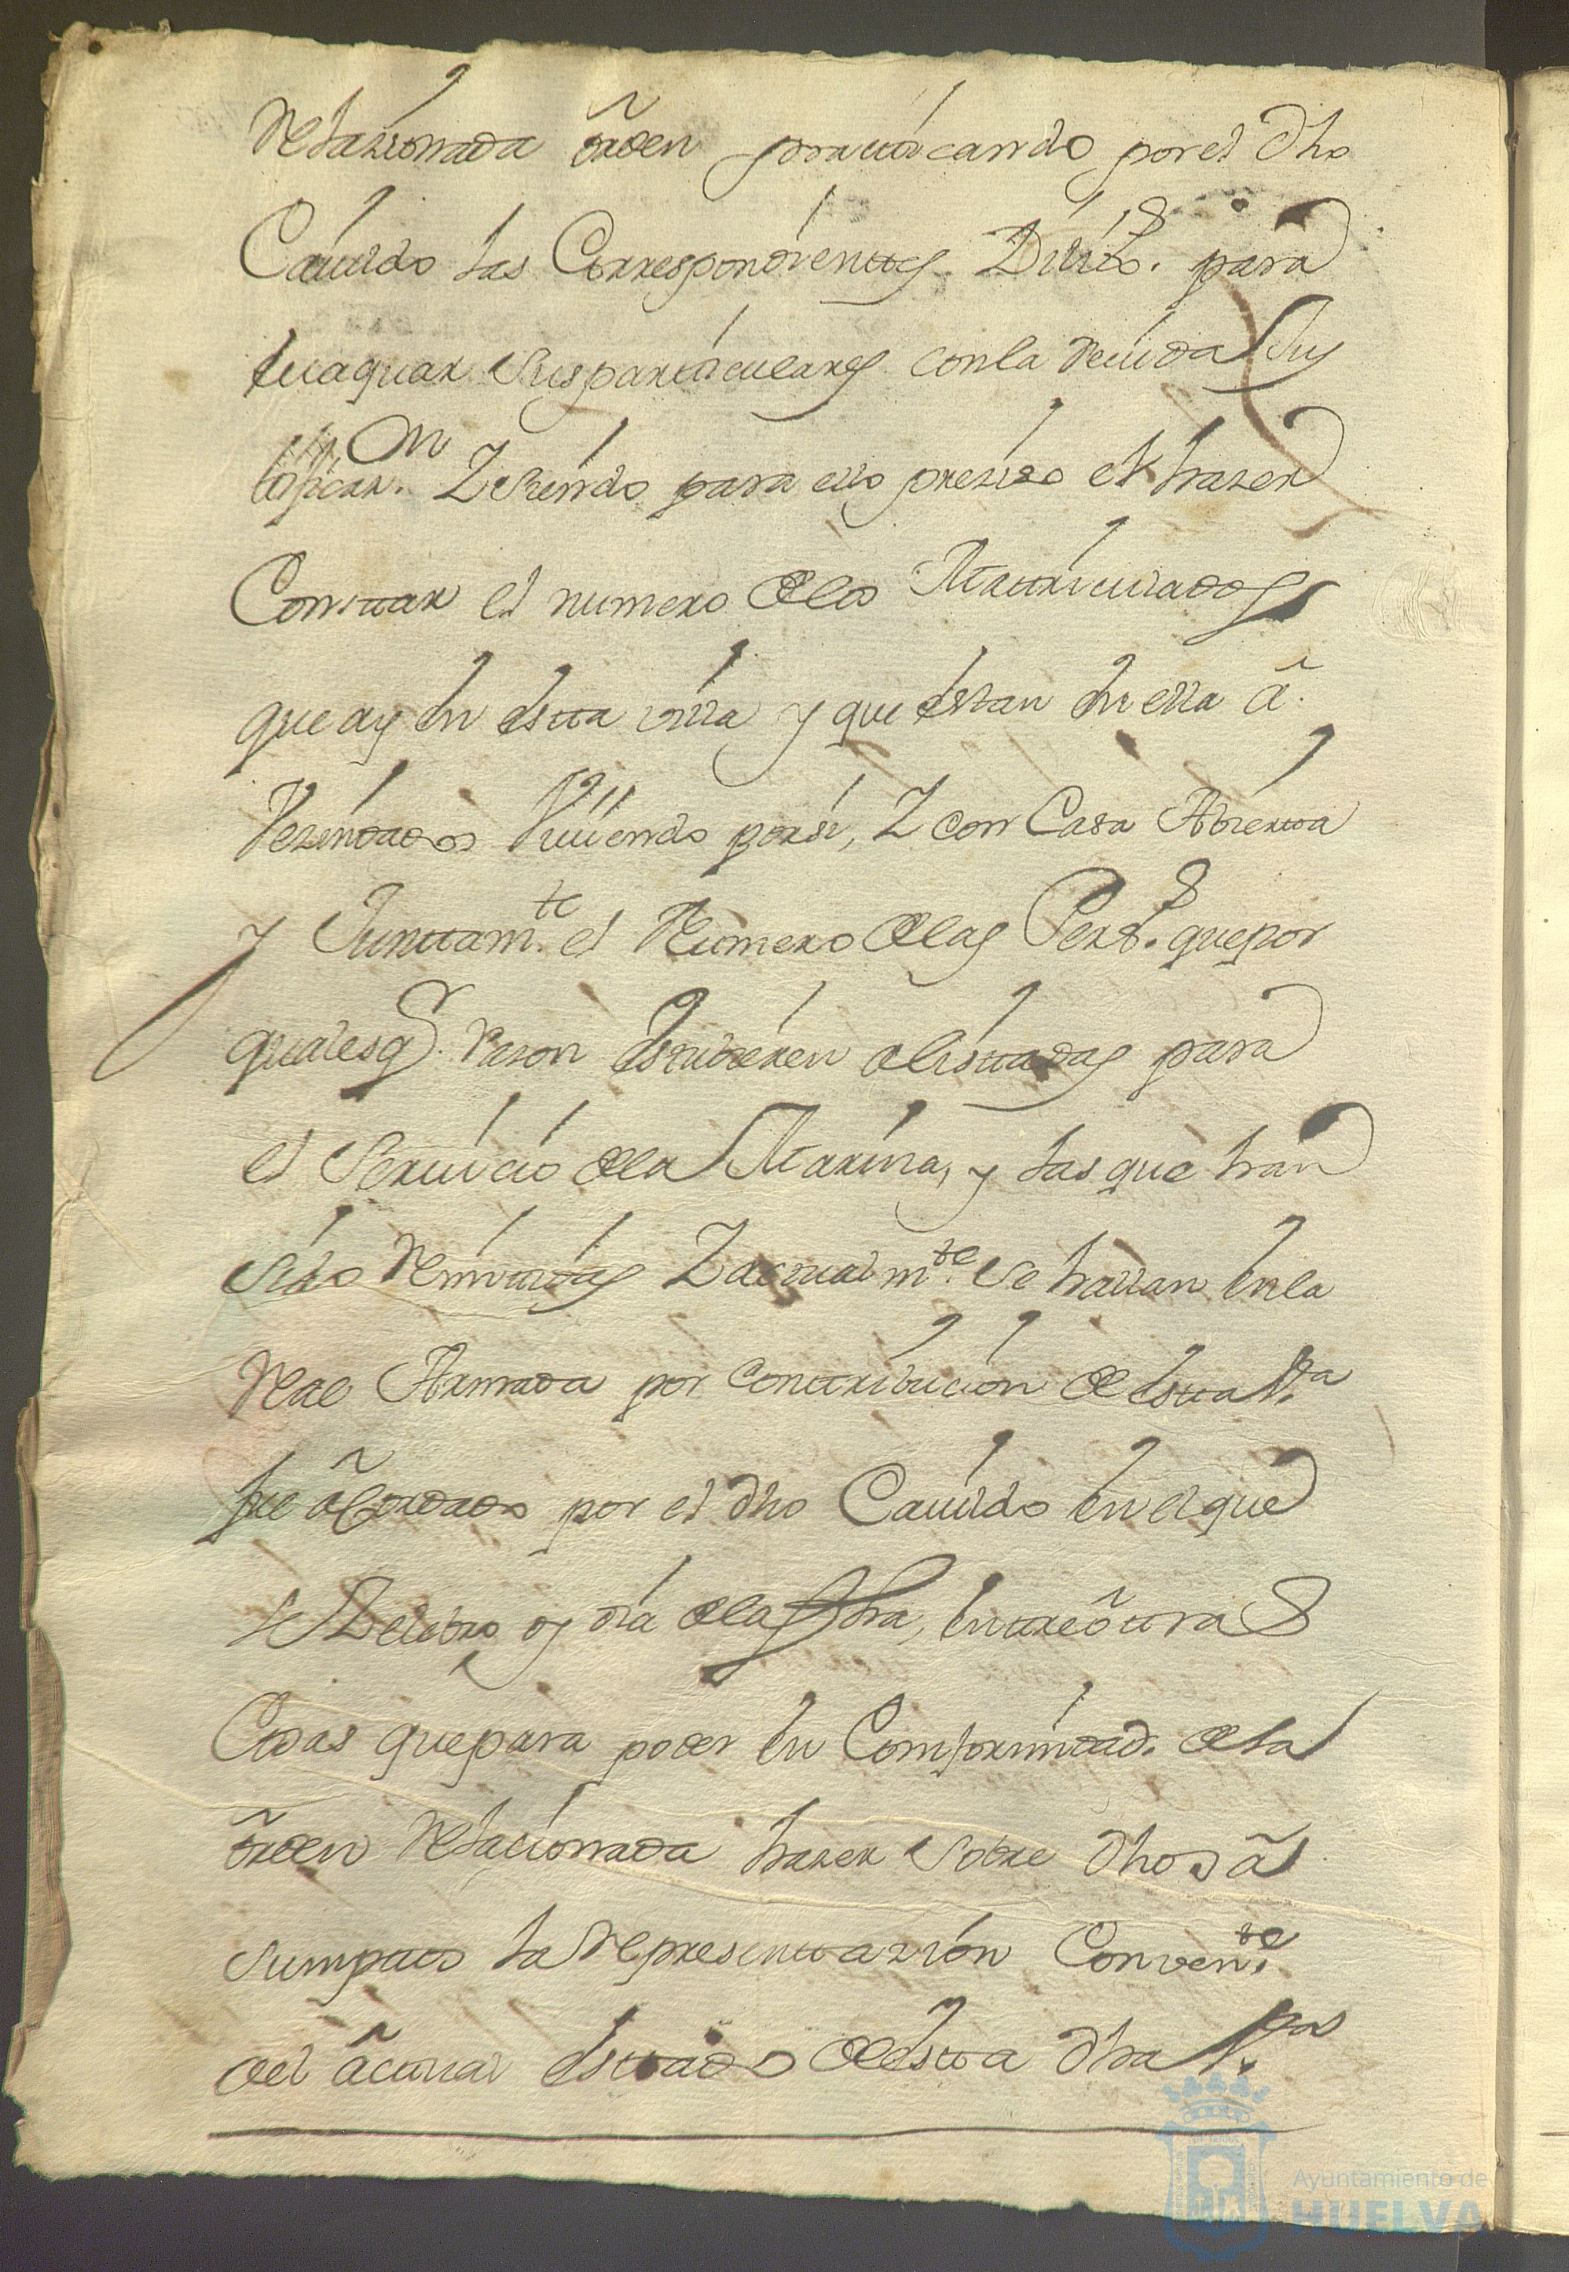 Relazionada orden practicando por el dho
Cavildo las Correspondientes Dilix.s para
evaquar sus particulares con la devida Jus
tificaz.on Y siendo para ello preziso el hazer
Constar el numero de los Matriculados
que ay en esta villa y que estan en ella a
Vezindados viviendo por si, Y con Casa Abierta
y Juntam.te el Numero de las Pers.s que por
qualesq.r razon estubieren alistadas para
el Servicio de la Marina, y las que han
sido Remitidas Y actualm.te se hallan en la
Real Armada por contribucion de esta V.a
fue acordado por el dho Cavildo en el que
se Zelebro oy dia de la fha, entre otras
Cosas que para poder en Conformidad. de la
orden Relacionada hazer sobre dhos a
sumptos la representazion Conven.te
del actual estado de esta dha V.a
Ayuntamiento de
HUELVA